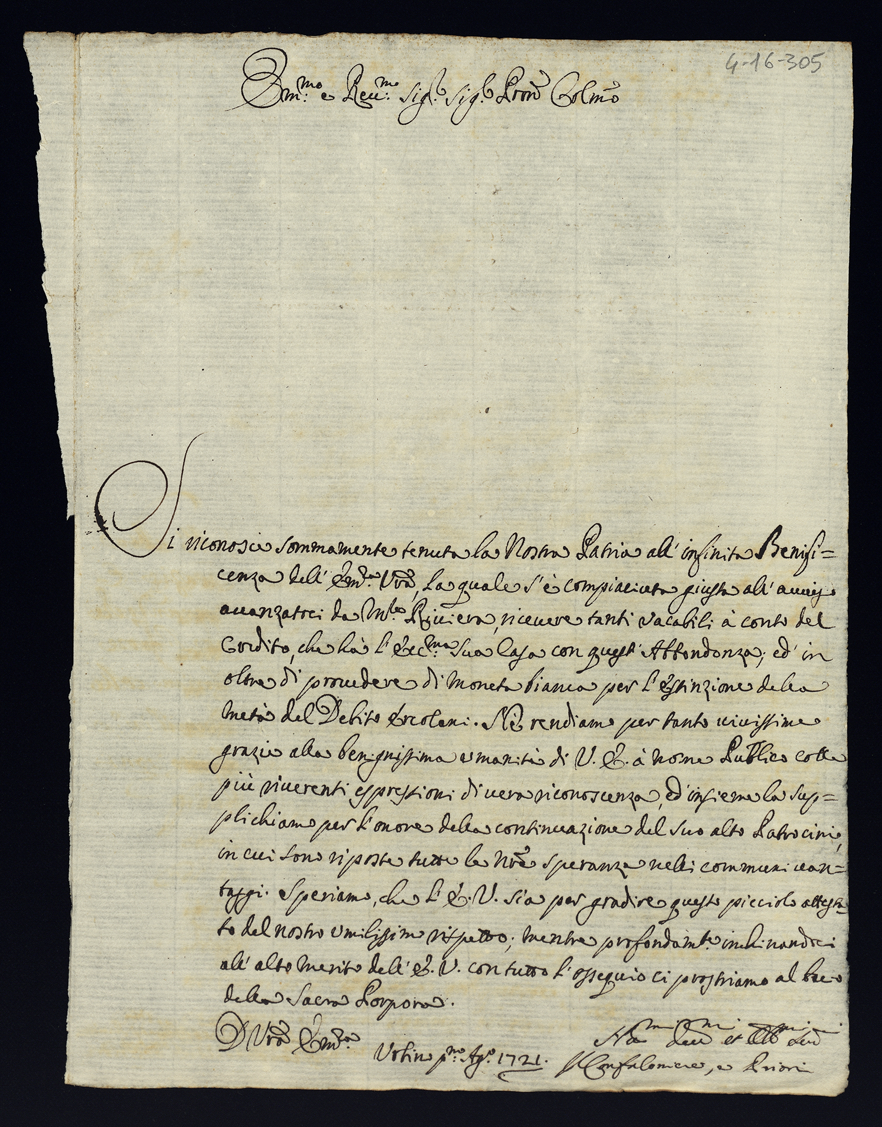 4-16-305
Em:mo e Reu:mo Sig.r Sig.r Pron Colmo
Si riconosce sommamente tenuta la Nostra Patria all' infinita Benifi=
cenza dell' Em:a Vra, la quale s'è compiaciuta giusta all' auuiso
auanzatoci da Riuiera, riceuere tanti vacabili à conto del
Credito, che hà l' Ecc:ma Sua Casa con quest' Abbondanza; ed' in
oltre di prouedere di moneta bianca per l' Estinzione della
metà del Debito Ercolani. Ne rendiamo per tanto viuissime
grazie alla benignissima vmanità di V. E. à nome Publico colle
più riuerenti espressioni di vera riconoscenza, ed' insieme la sup=
plichiamo per l'onore della continuazione del suo alto Patrocinio,
in cui sono riposte tutte le Nre speranze nelli communi uan=
taggi. Speriamo, che l' E. V. sia per gradire questo picciolo attesta=
to del nostro vmilissimo rispetto; mentre profondamte inchinandoci
all' alto merito dell' E. V. con tutto l' ossequio ci prostriamo al bacio
della Sacra Porpora.
D Vra Em:a
Vrbino pmo Ago 1721.
Deu et
Il Confaloniere, e Priori